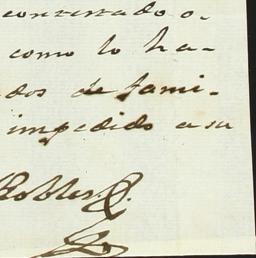 conserado o.
como lo ha-
dos de fami-
impedido a su
Robles